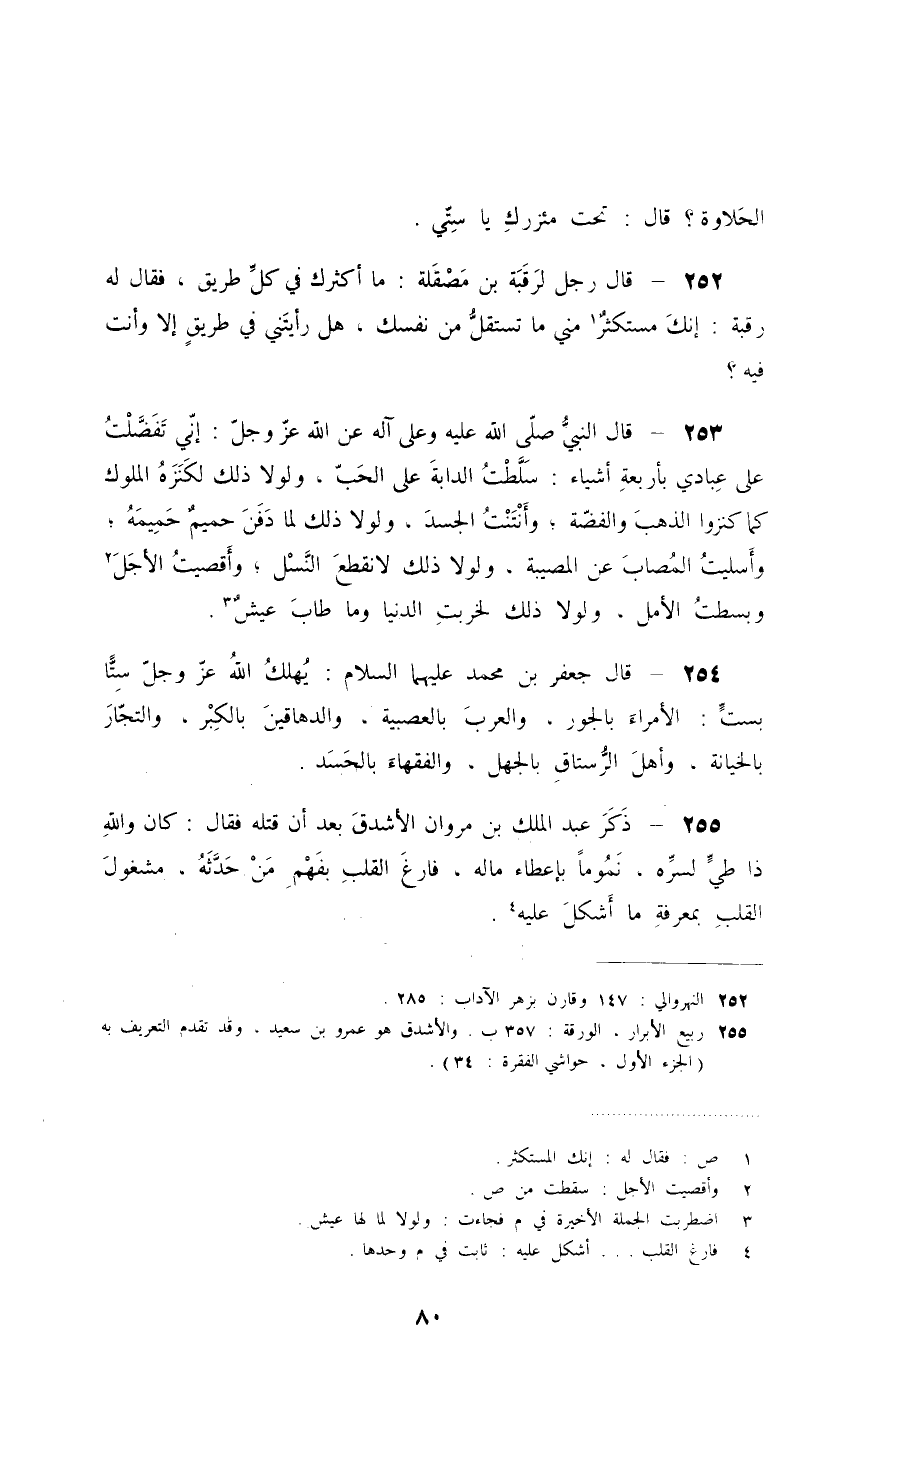 الحَلاوة ؟ قال : تحت مئزركِ يا سِتّي .
٢٥٢ – قال رجل لرَقَبَة بن مَصْقَلة : ما أكثرك في كلِّ طريق ، فقال له
رقبة : إنكَ مستكثرٌ١ مني ما تستقلُّ من نفسك ، هل رأيتَني في طريقٍ إلا وأنت
فيه ؟
٢٥٣ – قال النبيُّ صلّى الله عليه وعلى آله عن الله عزّ وجلّ : إنّي تَفَضَّلْتُ
على عِبادي بأربعةِ أشياء : سَلَّطْتُ الدابةَ على الحَبّ ، ولولا ذلك لكَنَزَهُ الملوك
كما كنزوا الذهبَ والفضّة ؛ وأَنْتَنْتُ الجسدَ ، ولولا ذلك لما دَفَنَ حميمٌ حَمِيمَهُ ؛
وأسليتُ المُصابَ عن المصيبة ، ولولا ذلك لانقطعَ النَّسْل ؛ وأَقصيتُ الأجَلَ٢
وبسطتُ الأمل ، ولولا ذلك لخربتِ الدنيا وما طابَ عيشٌ٣ .
٢٥٤ – قال جعفر بن محمد عليهما السلام : يُهلكُ اللهُ عزّ وجلّ سِتًّا
بستٍّ : الأمراءَ بالجور ، والعربَ بالعصبية ، والدهاقينَ بالكِبْر ، والتجّارَ
بالخيانة ، وأهلَ الرُّستاقِ بالجهل ، والفقهاءَ بالحَسَد .
٢٥٥ – ذَكَرَ عبد الملك بن مروان الأشدقَ بعد أن قتله فقال : كان واللهِ
ذا طيٍّ لسرِّه ، نَمُوماً بإعطاء ماله ، فارغَ القلبِ بفَهْمِ مَنْ حَدَّثَهُ ، مشغولَ
القلبِ بمعرفةِ ما أَشكلَ عليه٤ .
٢٥٢ النهروالي : ١٤٧ وقارن بزهر الآداب : ٢٨٥ .
٢٥٥ ربيع الأبرار ، الورقة : ٣٥٧ ب . والأشدق هو عمرو بن سعيد ، وقد تقدم التعريف به
( الجزء الأول ، حواشي الفقرة : ٣٤ ) .
١ ص : فقال له : إنك المستكثر .
٢ وأقصيت الأجل : سقطت من ص .
٣ اضطربت الجملة الأخيرة في م فجاءت : ولولا لما لها عيش .
٤ فارغ القلب . . . أشكل عليه : ثابت في م وحدها .
٨٠